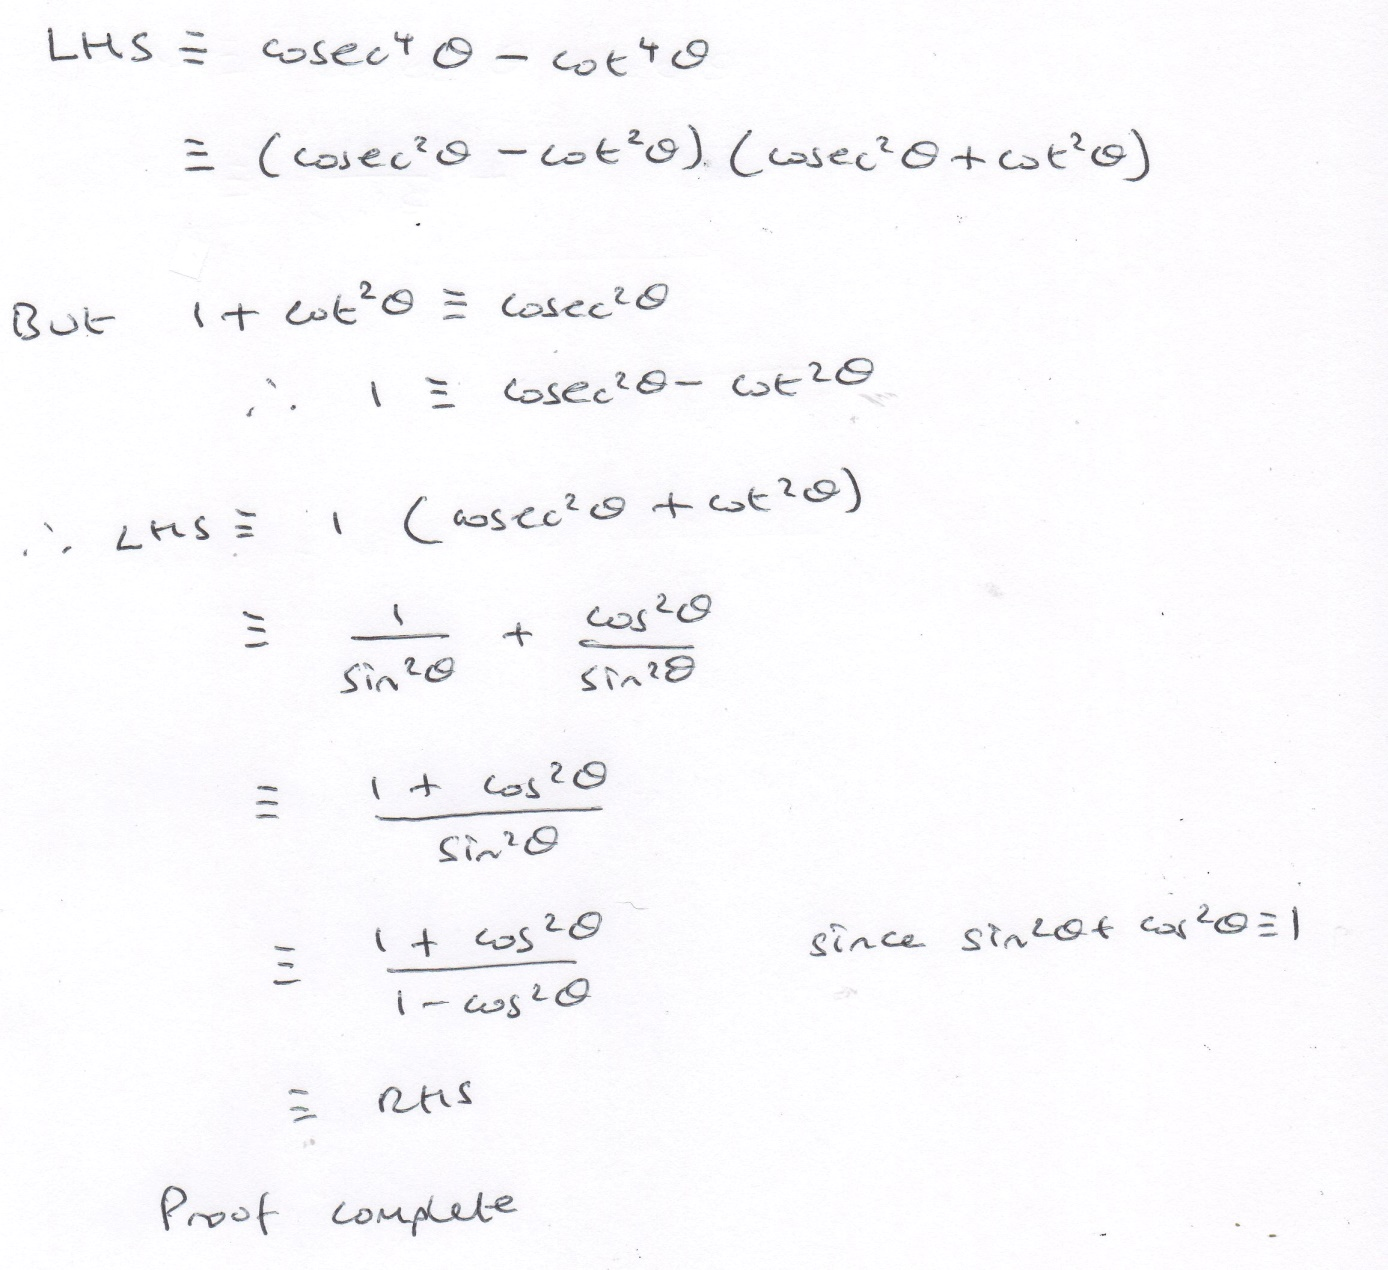 LHS ≡ cosec⁴θ − cot⁴θ
≡ (cosec²θ − cot²θ).(cosec²θ + cot²θ)
But 1 + cot²θ ≡ cosec²θ
∴ 1 ≡ cosec²θ − cot²θ
∴ LHS ≡ 1 (cosec²θ + cot²θ)
≡ 1/sin²θ + cos²θ/sin²θ
≡ (1 + cos²θ)/sin²θ
≡ (1 + cos²θ)/(1 − cos²θ) since sin²θ + cos²θ ≡ 1
≡ RHS
Proof complete